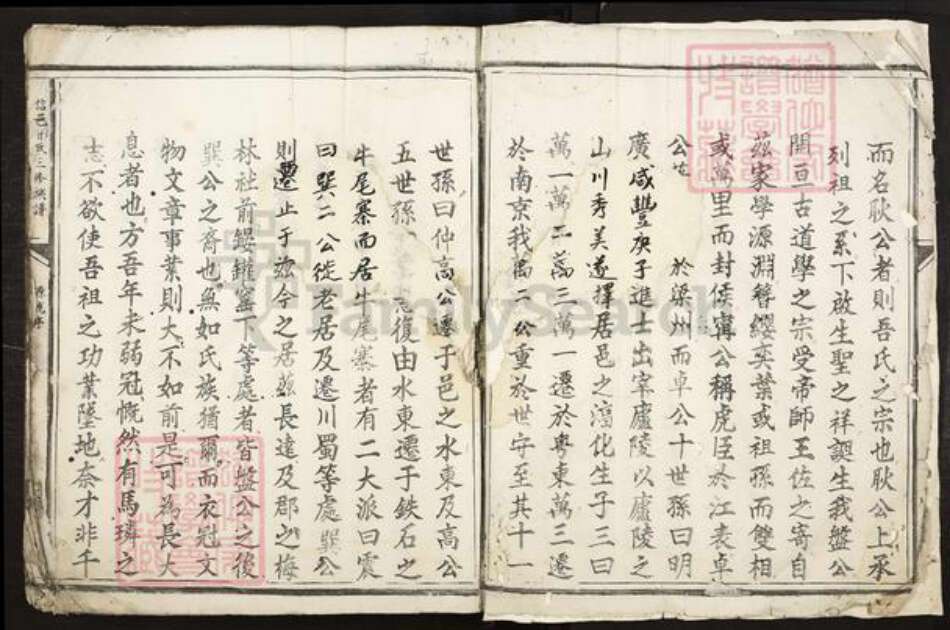 而名耿公者則吾氏之宗也耿公上承
列祖之系下啟生聖之祥誕生我盤公
開亘古道學之宗受帝師王佐之寄自
茲家學源淵簪纓奕葉或祖孫而雙相
或萬里而封侯寗公稱虎臣於江表卓
公 於梁州而卓公十世孫曰明
廣咸豐庚子進士出宰廬陵以廬陵之
山川秀美遂擇居邑之 化生子三曰
萬一萬二萬三萬一遷於粵東萬三遷
於南京我萬二公重於世守至其十一
世孫曰仲高公遷于邑之水東及高公
五世孫 復由水東遷于鉄石之
牛尾寨而居牛尾寨者有二大派曰震
曰巽二公徙老居及遷川蜀等處巽公
則遷止于茲今之居茲長達及郡之梅
林社前鏝鑵窰下等處者皆盤公之後
巽公之裔也無如氏族猶爾而衣冠文
物文章事業則大不如前是可為長大
息者也方吾年未弱冠慨然有馬璘之
志不欲使吾祖之功業墜地奈才非千
信邑 氏三修族譜
FamilySearch